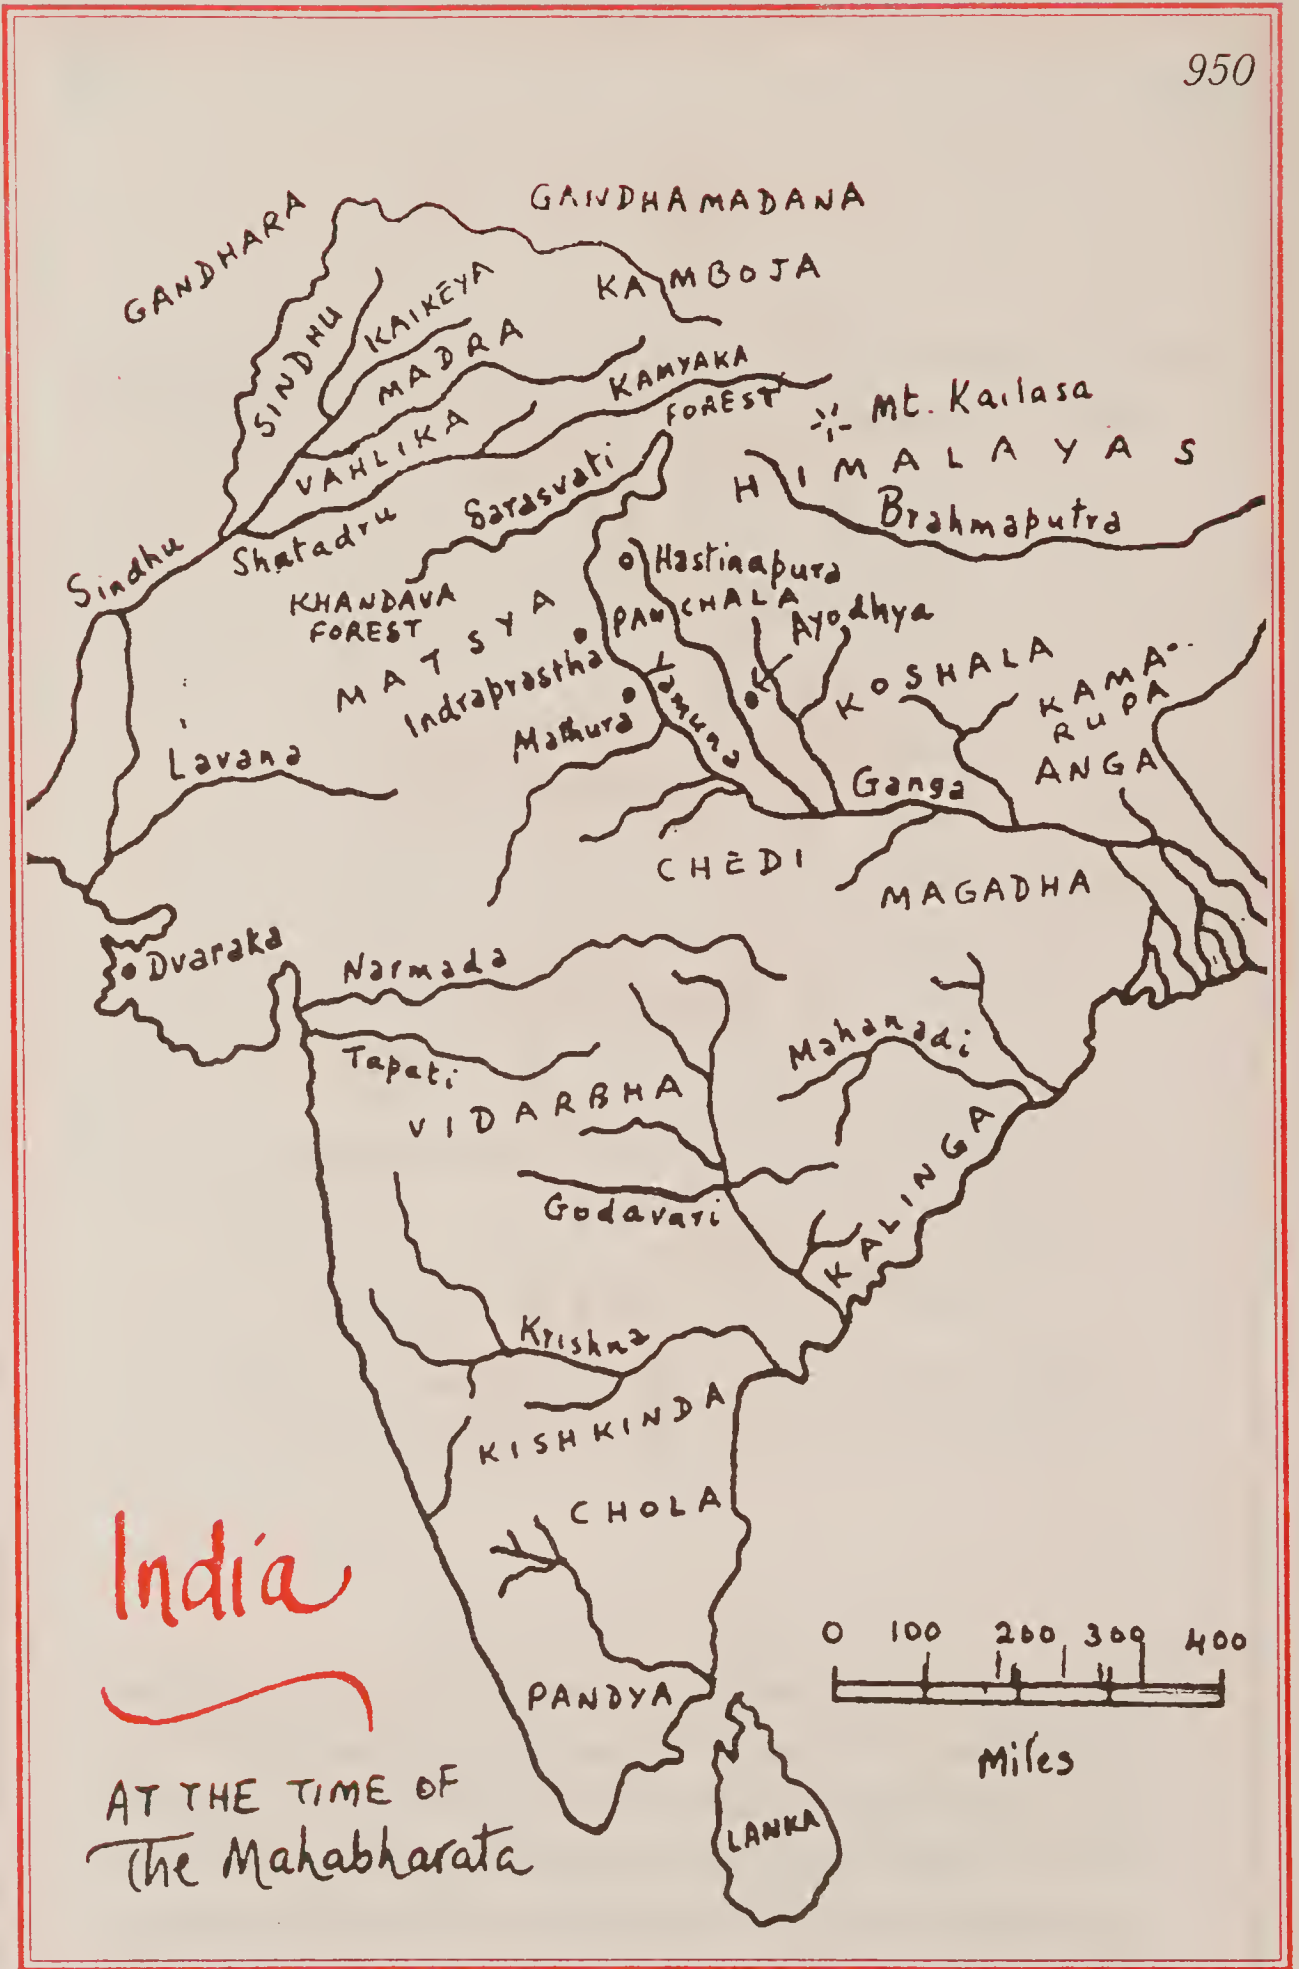 950
GANDHAMADANA
GANDHARA
KAMBOJA
SINDHU
KAIKĒYA
MADRA
KAMYAKA
FOREST
Mt. Kailasa
VAHLIKA
HIMALAYAS
Sarasvati
Brahmaputra
Shatadru
Sindhu
Hastinapura
KHANDAVA
FOREST
PANCHALA
Ayodhya
MATSYA
Indraprastha
Yamuna
KOSHALA
KAMA-
RUPA
Mathura
Lavana
Ganga
ANGA
CHĒDI
MAGADHA
Dvaraka
Narmada
Tapati
Mahanadi
VIDARBHA
KALINGA
Godavari
Krishna
KISHKINDA
CHOLA
India
0 100 200 300 400
Miles
PANDYA
AT THE TIME OF
The Mahabharata
LANKA